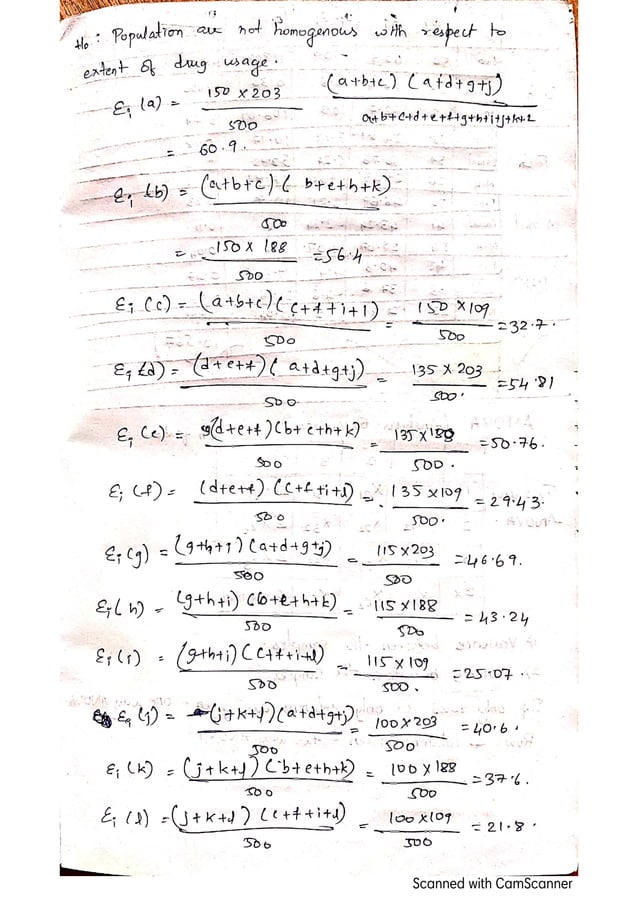 H₀ : Population are not homogenous with respect to
extent of drug usage.
Ei (a) = 150 × 203 / 500    (a+b+c) (a+d+g+j) / a+b+c+d+e+f+g+h+i+j+k+l
= 60.9.
Ei (b) = (a+b+c) ( b+e+h+k) / 500
= 150 × 188 / 500 = 56.4
Ei (c) = (a+b+c)(c+f+i+l) / 500 = 150 × 109 / 500 = 32.7.
Ei (d) = (d+e+f)( a+d+g+j) / 500 = 135 × 203 / 500. = 54.81
Ei (e) = (d+e+f)(b+e+h+k) / 500 = 135×188 / 500. = 50.76.
Ei (f) = (d+e+f) (c+f+i+l) / 500 = 135×109 / 500. = 29.43.
Ei (g) = (g+h+i)(a+d+g+j) / 500 = 115×203 / 500 = 46.69.
Ei (h) = (g+h+i) (b+e+h+k) / 500 = 115×188 / 500 = 43.24
Ei (i) = (g+h+i)(c+f+i+l) / 500 = 115×109 / 500. = 25.07.
Ei (j) = (j+k+l)(a+d+g+j) / 500 = 100×203 / 500 = 40.6.
Ei (k) = (j+k+l) (b+e+h+k) / 500 = 100 × 188 / 500 = 37.6.
Ei (l) = (j+k+l) (c+f+i+l) / 500 = 100×109 / 500 = 21.8.
Scanned with CamScanner